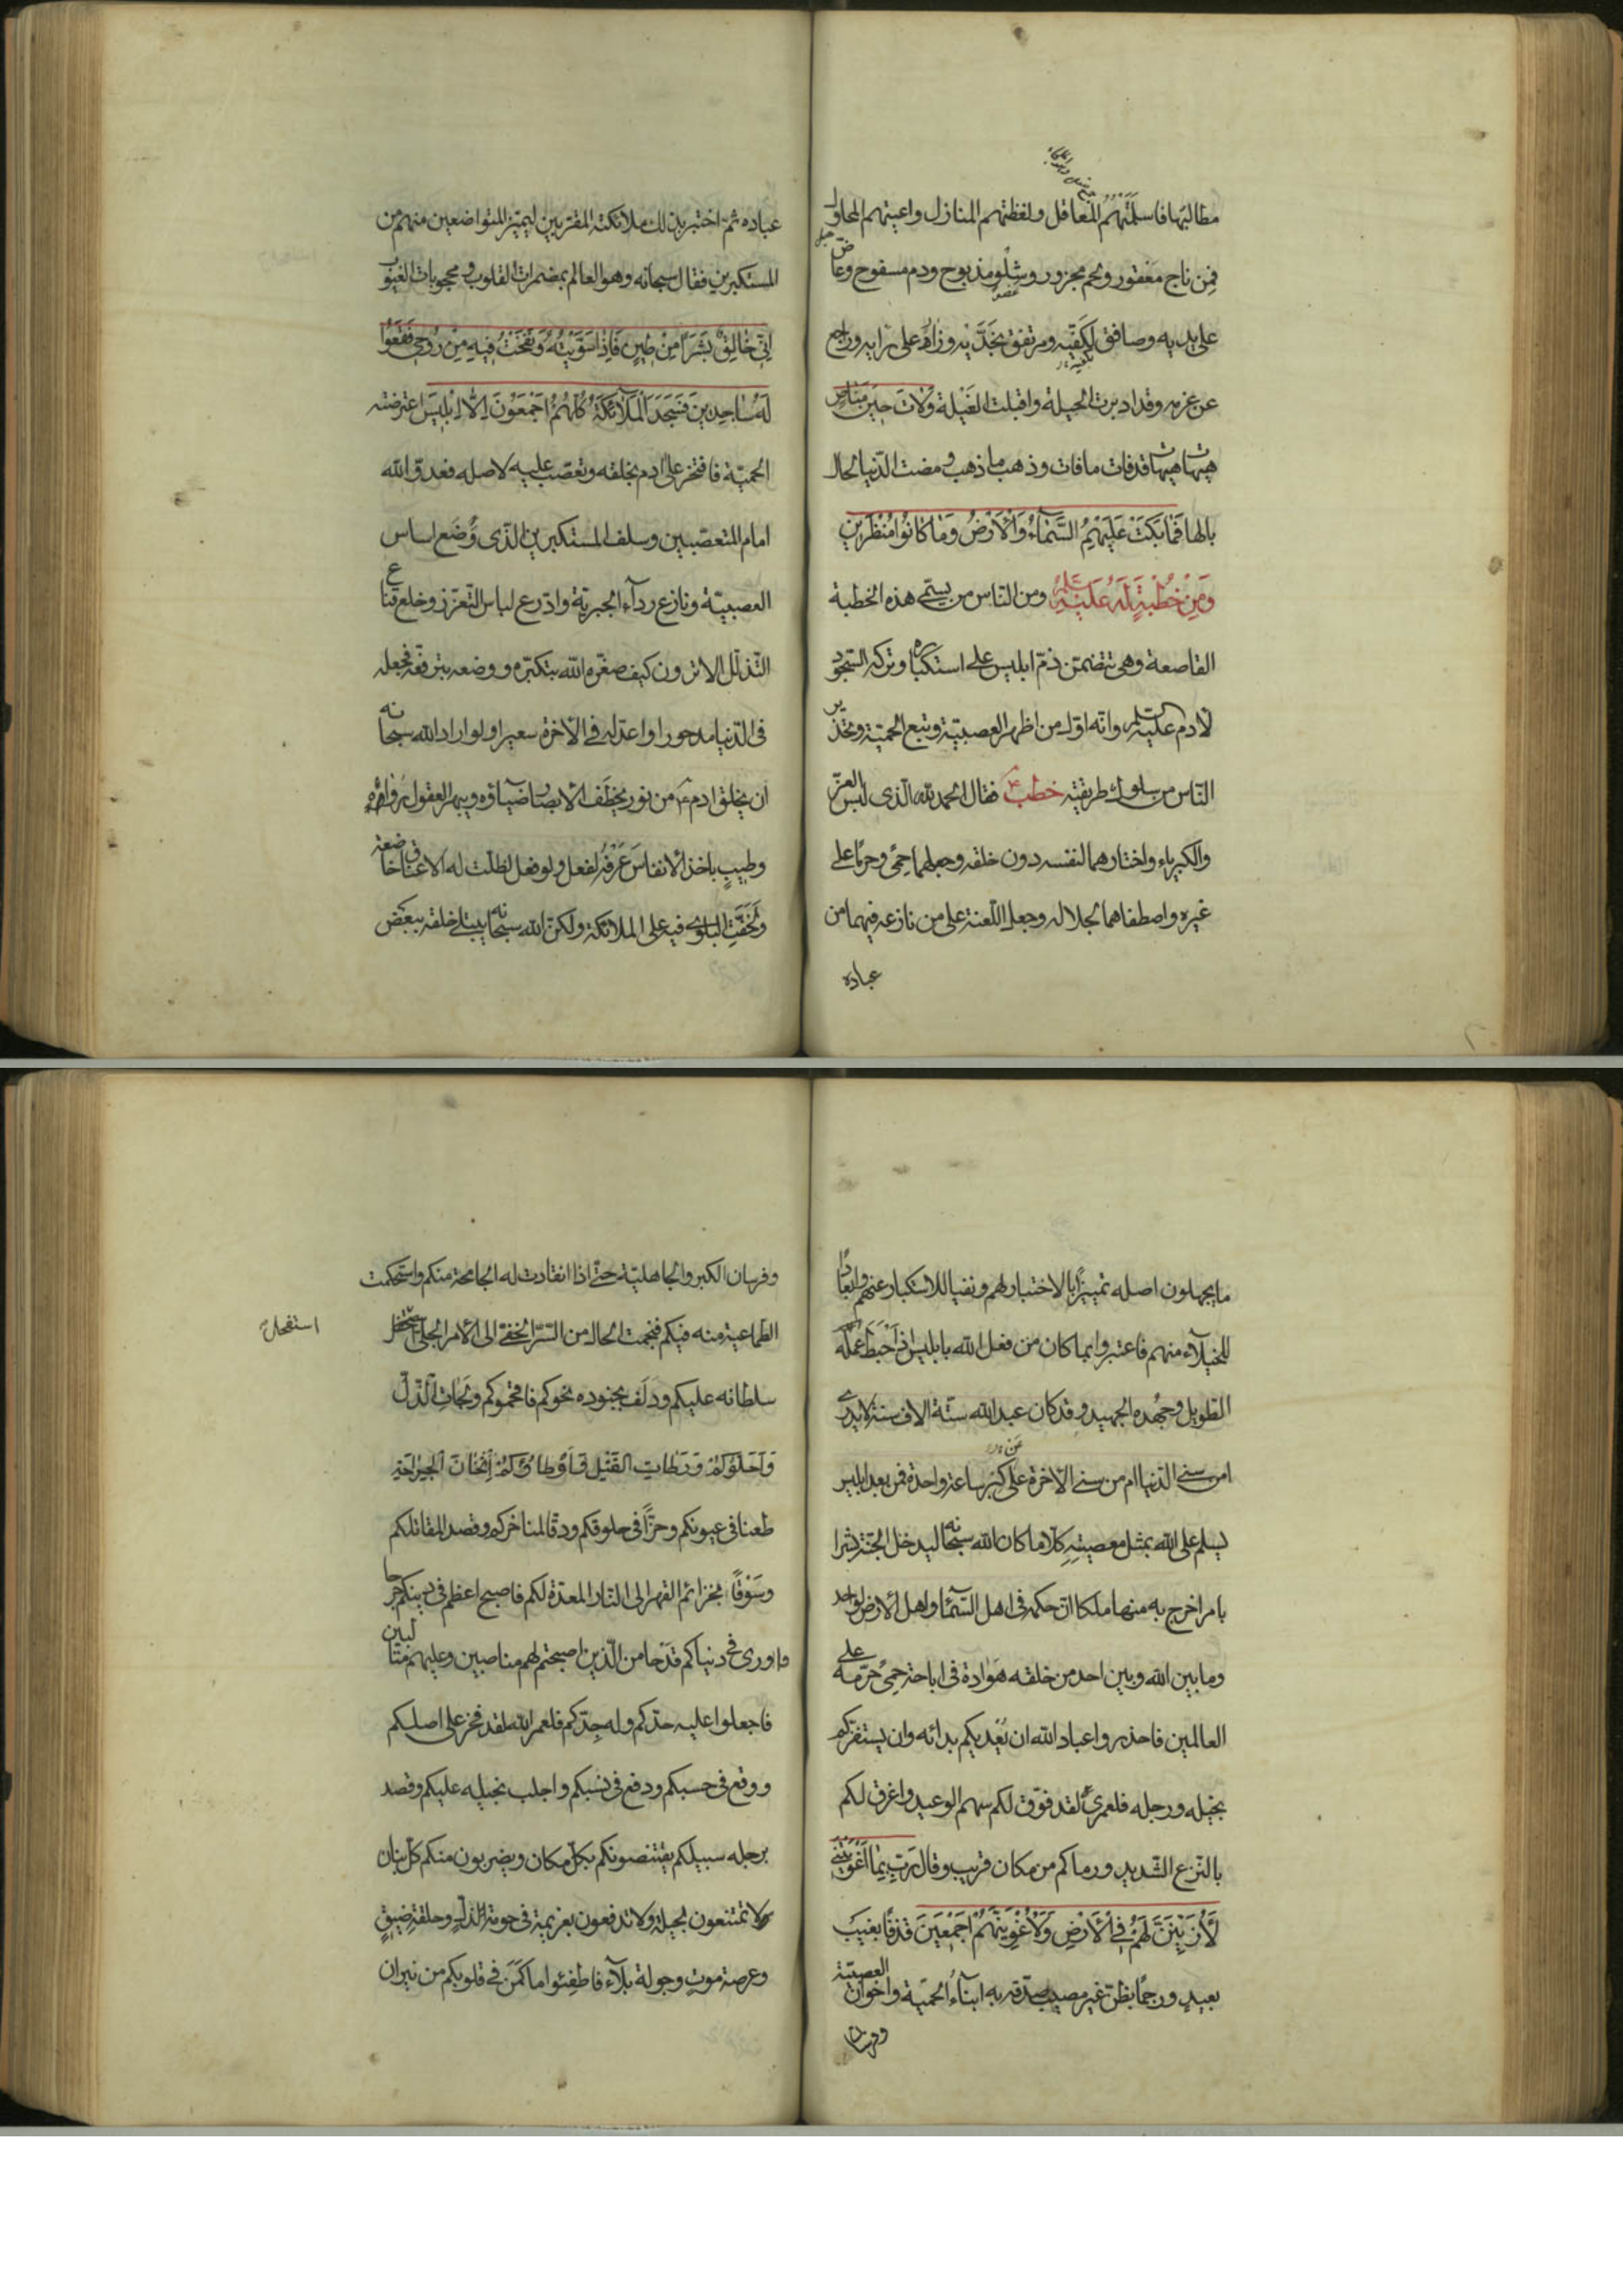 مطالبها فاسلمتهم المعاقل ولفظتهم المنازل واعيتهم المحاول
فمن ناج معقور ولحم مجزور وشلو مذبوح ودم مسفوح وعاض
عضو
على يديه وصافق لكفيه ومرتفق بخديه وزار على رايه وراجع
بكفيه
عن عزمه وقد ادبرت الحيلة واقبلت الغيلة ولات حين مناص
هيهات هيهات قد فات ما فات وذهب ما ذهب ومضت الدنيا لحال
بالها فما بكت عليهم السماء والارض وما كانوا منظرين
ومن خطبة له عليه السلم ومن الناس من يسمى هذه الخطبة
القاصعة وهى تتضمن ذم ابليس على استكباره وتركه السجود
لادم عليه السلم وانه اول من اظهر العصبية وتبع الحمية وتحذير
الناس من سلوك طريقته خطب ع فقال الحمد لله الذى لبس العز
والكبرياء واختارهما لنفسه دون خلقه وجعلهما حمى وحرما على
غيره واصطفاهما لجلاله وجعل اللعنة على من نازعه فيهما من
عباده
عباده ثم اختبر بذلك ملائكته المقربين ليميز المتواضعين منهم من
المستكبرين فقال سبحانه وهو العالم بمضمرات القلوب ومحجوبات الغيوب
انى خالق بشرا من طين فاذا سويته ونفخت فيه من روحى فقعوا
له ساجدين فسجد الملائكة كلهم اجمعون الا ابليس اعترضته
الحمية فافتخر على ادم بخلقه وتعصب عليه لاصله فعدو الله
امام المتعصبين وسلف المستكبرين الذى وضع اساس
العصبية ونازع رداء الجبرية وادرع لباس التعزز وخلع قناع
التذلل الا ترون كيف صغره الله بتكبره ووضعه بترفعه فجعله
فى الدنيا مدحورا واعد له فى الاخرة سعيرا ولو اراد الله سبحانه
ان يخلق ادم ع من نور يخطف الابصار ضياؤه ويبهر العقول رواؤه
وطيب ياخذ الانفاس عرفه لفعل ولو فعل لظلت له الاعناق خاضعة
ولخفت البلوى فيه على الملائكة ولكن الله سبحانه يبتلى خلقه ببعض
ما يجهلون اصله تمييزا بالاختبار لهم ونفيا للاستكبار عنهم وابعادا
للخيلاء منهم فاعتبروا بما كان من فعل الله بابليس اذ احبط عمله
الطويل وجهده الجهيد وقد كان عبد الله ستة الاف سنة لا يدرى
امن سنى الدنيا ام من سنى الاخرة على كبر ساعة واحدة فمن بعد ابليس
عن
يسلم على الله بمثل معصيته كلا ما كان الله سبحانه ليدخل الجنة بشرا
بامر اخرج به منها ملكا ان حكمه فى اهل السماء واهل الارض لواحد
وما بين الله وبين احد من خلقه هوادة فى اباحة حمى حرمه على
العالمين فاحذروا عباد الله ان يعديكم بدائه وان يستفزكم
بخيله ورجله فلعمرى لقد فوق لكم سهم الوعيد واغرق لكم
بالنزع الشديد ورماكم من مكان قريب وقال رب بما اغويتنى
لازينن لهم فى الارض ولاغوينهم اجمعين قذفا بغيب
بعيد ورجما بظن غير مصيب صدقه به ابناء الحمية واخوان العصبية
وفرسان
وفرسان الكبر والجاهلية حتى اذا انقادت له الجامحة منكم واستحكمت
الطماعية منه فيكم فنجمت الحال من السر الخفى الى الامر الجلى استفحل
استفحل
سلطانه عليكم ودلف بجنوده نحوكم فاقحموكم ولجات الذل
واحلوكم ورطات القتل واوطاوكم اثخان الجراحة
طعنا فى عيونكم وحزا فى حلوقكم ودقا لمناخركم وقصدا لمقاتلكم
وسوقا بخزائم القهر الى النار المعدة لكم فاصبح اعظم فى دينكم جرحا
واورى فى دنياكم قدحا من الذين اصبحتم لهم مناصبين وعليهم متالبين
فاجعلوا عليه حدكم وله جدكم فلعمر الله لقد فخر على اصلكم
ووقع فى حسبكم ودفع فى نسبكم واجلب بخيله عليكم وقصد
برجله سبيلكم يقتنصونكم بكل مكان ويضربون منكم كل بنان
لا تمتنعون بحيلة ولا تدفعون بعزيمة فى حومة ذل وحلقة ضيق
وعرصة موت وجولة بلاء فاطفئوا ما كمن فى قلوبكم من نيران